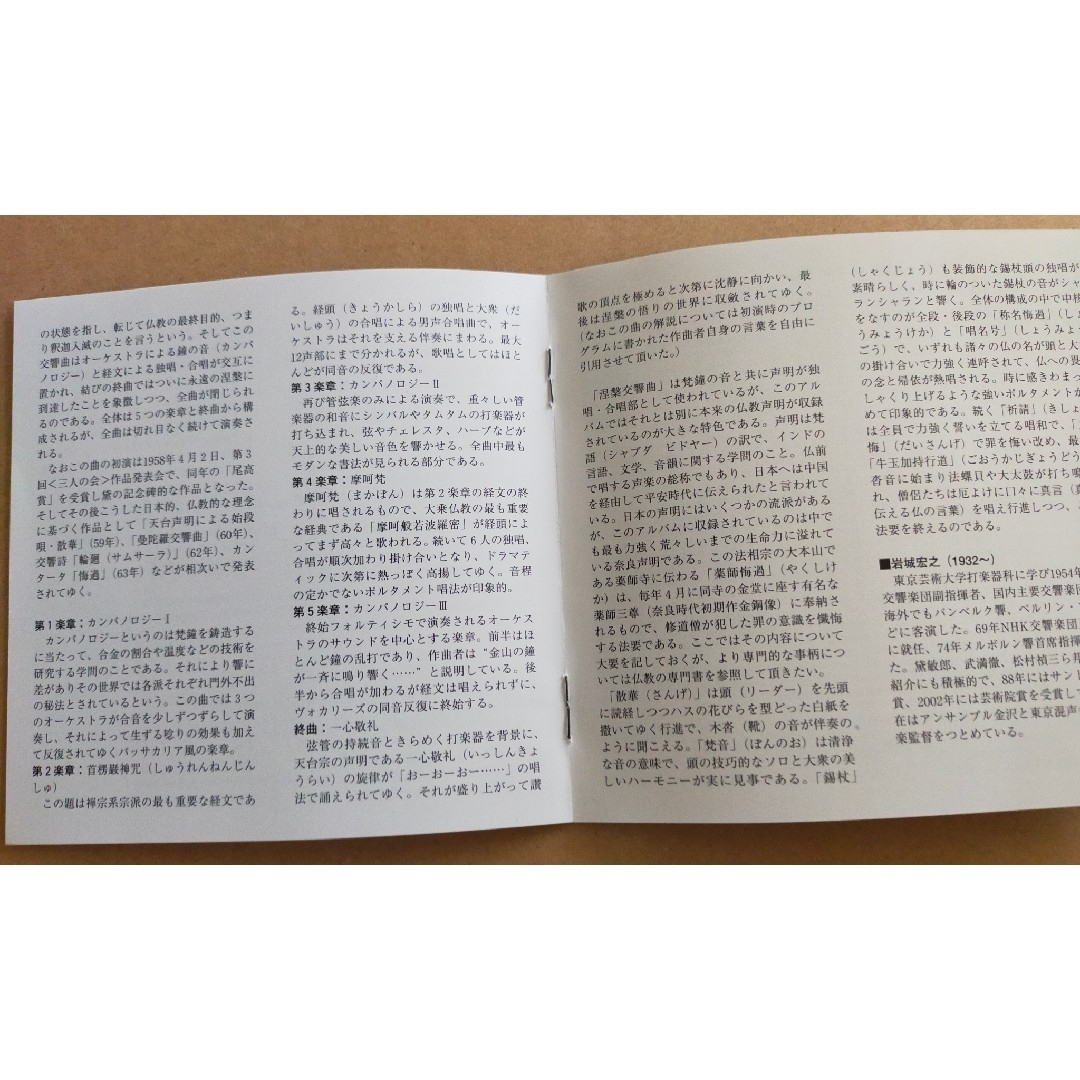 の状態を指し、転じて仏教の最終目的、つま
り釈迦入滅のことを言うという。そしてこの
交響曲はオーケストラによる鐘の音（カンパ
ノロジー）と経文による独唱・合唱が交互に
置かれ、結びの終曲ではついに永遠の涅槃に
到達したことを象徴しつつ、全曲が閉じられ
るのである。全体は5つの楽章と終曲から構
成されるが、全曲は切れ目なく続けて演奏さ
れる。
なおこの曲の初演は1958年4月2日、第3
回<三人の会>作品発表会で、同年の「尾高
賞」を受賞し黛の記念碑的な作品となった。
そしてその後こうした日本的、仏教的な理念
に基づく作品として「天台声明による始段
唄・散華」（59年）、「曼陀羅交響曲」（60年）、
交響詩「輪廻（サムサーラ）」（62年）、カン
タータ「悔過」（63年）などが相次いで発表
されてゆく。
第1楽章：カンパノロジーⅠ
カンパノロジーというのは梵鐘を鋳造する
に当たって、合金の割合や温度などの技術を
研究する学問のことである。それにより響に
差がありその世界では各派それぞれ門外不出
の秘法とされているという。この曲では3つ
のオーケストラが合音を少しずつずらして演
奏し、それによって生ずる唸りの効果も加え
て反復されてゆくパッサカリア風の楽章。
第2楽章：首楞巖神咒（しゅうれんねんじん
しゅ）
この題は禅宗系宗派の最も重要な経文であ
る。経頭（きょうかしら）の独唱と大衆（だ
いしゅう）の合唱による男声合唱曲で、オー
ケストラはそれを支える伴奏にまわる。最大
12声部にまで分かれるが、歌唱としてはほと
んどが同音の反復である。
第3楽章：カンパノロジーⅡ
再び管弦楽のみによる演奏で、重々しい管
楽器の和音にシンバルやタムタムの打楽器が
打ち込まれ、弦やチェレスタ、ハープなどが
天上的な美しい音色を響かせる。全曲中最も
モダンな書法が見られる部分である。
第4楽章：摩呵梵
摩呵梵（まかぼん）は第2楽章の経文の終
わりに唱されるもので、大乗仏教の最も重要
な経典である「摩呵般若波羅密」が経頭によ
ってまず高々と歌われる。続いて6人の独唱、
合唱が順次加わり掛け合いとなり、ドラマテ
ィックに次第に熱っぽく高揚してゆく。音程
の定かでないポルタメント唱法が印象的。
第5楽章：カンパノロジーⅢ
終始フォルティシモで演奏されるオーケス
トラのサウンドを中心とする楽章。前半はほ
とんど鐘の乱打であり、作曲者は“金山の鐘
が一斉に鳴り響く……”と説明している。後
半から合唱が加わるが経文は唱えられずに、
ヴォカリーズの同音反復に終始する。
終曲：一心敬礼
弦管の持続音ときらめく打楽器を背景に、
天台宗の声明である一心敬礼（いっしんきょ
うらい）の旋律が「おーおーおー……」の唱
法で誦えられてゆく。それが盛り上がって讃
歌の頂点を極めると次第に沈静に向かい、最
後は涅槃の悟りの世界に収斂されてゆく。
（なおこの曲の解説については初演時のプロ
グラムに書かれた作曲者自身の言葉を自由に
引用させて頂いた。）
「涅槃交響曲」は梵鐘の音と共に声明が独
唱・合唱部として使われているが、このアル
バムではそれとは別に本来の仏教声明が収録
されているのが大きな特色である。声明は梵
語（シャブダ　ビドヤー）の訳で、インドの
言語、文学、音韻に関する学問のこと。仏前
で唱する声楽の総称でもあり、日本へは中国
を経由して平安時代に伝えられたと言われて
いる。日本の声明にはいくつかの流派がある
が、このアルバムに収録されているのは中で
も最も力強く荒々しいまでの生命力に溢れて
いる奈良声明である。この法相宗の大本山で
ある薬師寺に伝わる「薬師悔過」（やくしけ
か）は、毎年4月に同寺の金堂に座す有名な
薬師三尊（奈良時代初期作金銅像）に奉納さ
れるもので、修道僧が犯した罪の意識を懺悔
する法要である。ここではその内容について
大要を記しておくが、より専門的な事柄につ
いては仏教の専門書を参照して頂きたい。
「散華（さんげ）」は頭（リーダー）を先頭
に読経しつつハスの花びらを型どった白紙を
撒いてゆく行進で、木沓（靴）の音が伴奏の
ように聞こえる。「梵音」（ぼんのお）は清浄
な音の意味で、頭の技巧的なソロと大衆の美
しいハーモニーが実に見事である。「錫杖」
（しゃくじょう）も装飾的な錫杖頭の独唱が
素晴らしく、時に輪のついた錫杖の音がシャ
ランシャランと響く。全体の構成の中で中核
をなすのが全段・後段の「称名悔過」（しょ
うみょうけか）と「唱名号」（しょうみょう
ごう）で、いずれも諸々の仏の名が頭と大
の掛け合いで力強く連呼されて、仏への畏
の念と帰依が熱唱される。時に感きわまっ
しゃくり上げるような強いポルタメントが
めて印象的である。続く「祈請」（きしょ
は全員で力強く誓いを立てる唱和で、「
悔」（だいさんげ）で罪を悔い改め、最
「牛玉加持行道」（ごおうかじぎょうどう
沓音に始まり法螺貝や大太鼓が打ち鳴
れ、僧侶たちは厄よけに口々に真言（真
伝える仏の言葉）を唱え行進しつつ、
法要を終えるのである。
■岩城宏之（1932～）
東京芸術大学打楽器科に学び1954年
交響楽団副指揮者、国内主要交響楽団
海外でもバンベルク響、ベルリン・
どに客演した。69年NHK交響楽団
に就任、74年メルボルン響首席指揮
た。黛敏郎、武満徹、松村禎三ら邦
紹介にも積極的で、88年にはサント
賞、2002年には芸術院賞を受賞して
在はアンサンブル金沢と東京混声
楽監督をつとめている。